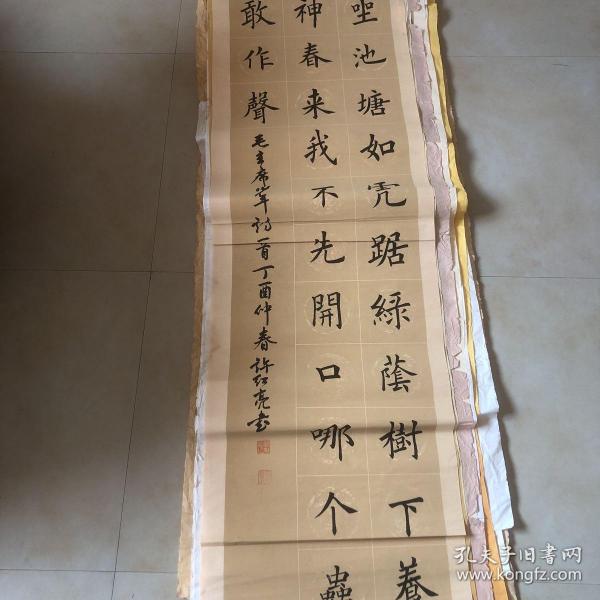 坐池塘如虎踞綠蔭樹下養
神春来我不先開口哪个蟲
敢作聲
毛主席草詩一首丁酉仲春许红亮书
孔夫子旧书网
www.kongfz.com